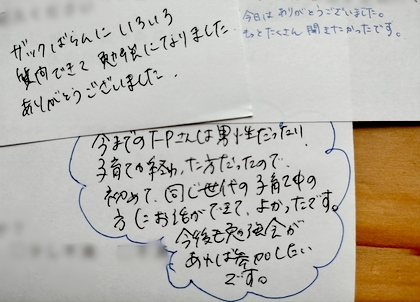 ザックばらんにいろいろ
質問できて勉強になりました
ありがとうございました.
今日はありがとうございました。
もっとたくさん聞きたかったです。
今までのFPさんは男性だったり
子育てが終わった方だったので、
初めて、同じ世代の子育て中の
方にお話ができて、よかったです。
今後も勉強会が
あれば参加したい
です。